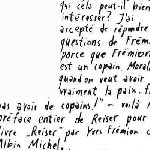 Qui cela peut-il bien
intéresser? J'ai
accepté de répondre
questions de Frémion
parce que Frémion
est un copain. Morale
quand on veut avoir
vraiment la paix, f
pas avoir de copains!" — voilà
préface entière de Reiser pour
livre "Reiser" par Yves Frémion c
Albin Michel.